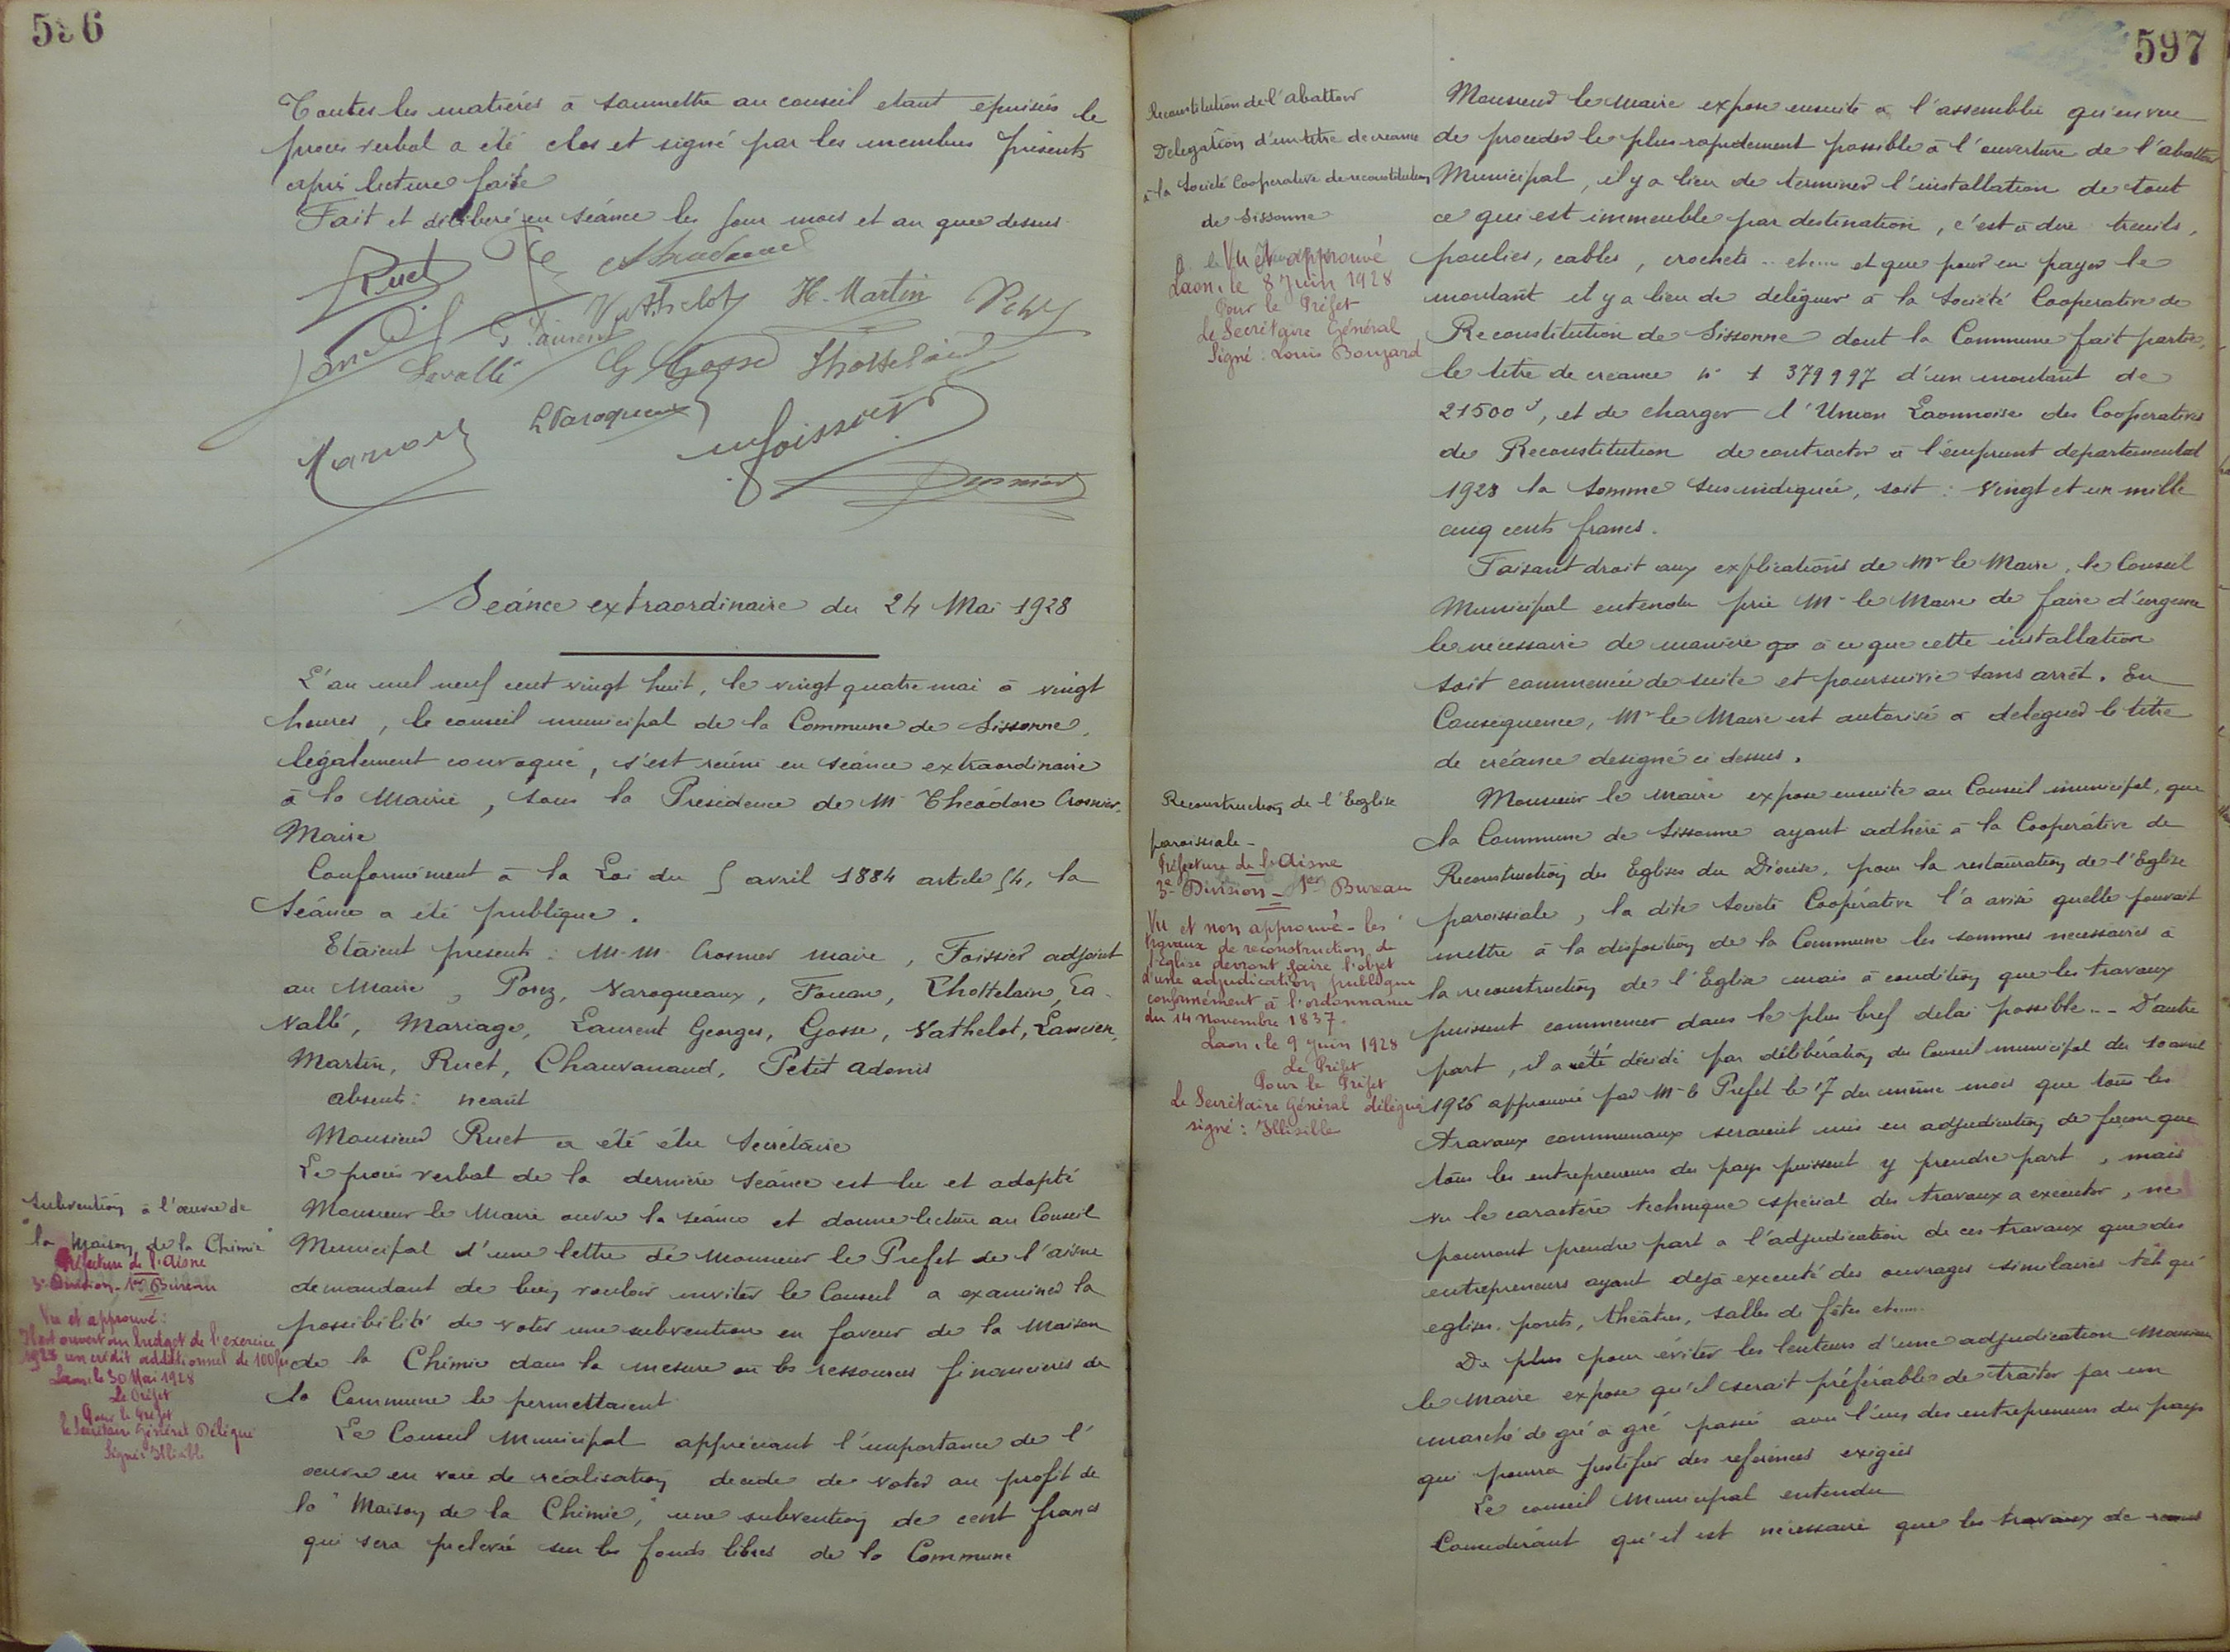 596
Toutes les matières à soumettre au conseil etant epuisées le
procès verbal a été clos et signé par les membres présents
après lecture faite
Fait et délibéré en séance les jour mois et an que dessus
Ruet
Vathelot H. Martin Petit
G Laurent
Lavallé G Gosse Lhottelain
L Varoqueaux
Foissier
Séance extraordinaire du 24 Mai 1928
L'an mil neuf cent vingt huit, le vingt quatre mai à vingt
heures, le conseil municipal de la Commune de Sissonne,
légalement convoqué, s'est réuni en séance extraordinaire
à la Mairie, sous la Présidence de Mr Théodore Crosnier,
Maire
Conformément à la Loi du 5 avril 1884 article 54, la
Séance a été publique.
Etaient présents : M.M. Crosnier maire, Foissier adjoint
au Maire, Posez, Varoqueaux, Fouan, Lhottelain, La-
Vallé, Mariage, Laurent Georges, Gosse, Vathelot, Lancien,
Martin, Ruet, Chauvanaud, Petit Adonis
Absents : néant
Monsieur Ruet a été élu Secrétaire
Le procès verbal de la dernière séance est lu et adopté
Subvention à l'œuvre de
"la Maison de la Chimie"
Préfecture de l'Aisne
3e Division - 1er Bureau
Vu et approuvé :
Il est ouvert au budget de l'exercice
1928 un crédit additionnel de 100 frs
Laon, le 30 Mai 1928
Le Préfet
Pour le Préfet
le Secrétaire Général Délégué
Signé : Illisible
Monsieur le Maire ouvre la séance et donne lecture au Conseil
Municipal d'une lettre de Monsieur le Prefet de l'aisne
demandant de bien vouloir inviter le Conseil a examiner la
possibilité de voter une subvention en faveur de la Maison
de la Chimie dans la mesure où les ressources financières de
la Commune le permettaient
Le Conseil Municipal appréciant l'importance de l'
œuvre en voie de réalisation décide de voter au profit de
la "Maison de la Chimie," une subvention de cent francs
qui sera prélevée sur les fonds libres de la Commune
597
Reconstitution de l'abattoir
Délégation d'un titre de créance
à la Société Coopérative de reconstitution
de Sissonne
Vu et approuvé
Laon, le 8 Juin 1928
Pour le Préfet
Le Secrétaire Général
Signé : Louis Bouzard
Monsieur le Maire expose ensuite à l'assemblée qu'en vue
de procéder le plus rapidement possible à l'ouverture de l'abattoir
Municipal, il y a lieu de terminer l'installation de tout
ce qui est immeuble par destination, c'est à dire treuils,
poulies, cables, crochets .. etc... et que pour en payer le
montant il y a lieu de déléguer à la Société Coopérative de
Reconstitution de Sissonne dont la Commune fait partie,
le titre de créance n° 1 379997 d'un montant de
21500 f, et de charger l'Union Laonnoise des Coopératives
de Reconstitution de contracter à l'emprunt départemental
1928 la somme sus indiquée, soit : Vingt et un mille
cinq cents francs.
Faisant droit aux explications de Mr le Maire, le Conseil
Municipal entendu prie Mr le Maire de faire d'urgence
le nécessaire de manière qu à ce que cette installation
soit commencée de suite et poursuivie sans arrêt. En
Conséquence, Mr le Maire est autorisé à déléguer le titre
de créance désigné ci dessus.
Reconstruction de l'Eglise
paroissiale -
Préfecture de l'Aisne
3e Division - 1er Bureau
Vu et non approuvé - les
travaux de reconstruction de
l'Eglise devront faire l'objet
d'une adjudication publique
conformément à l'ordonnance
du 14 novembre 1837.
Laon, le 9 Juin 1928
Le Préfet
Pour le Préfet
Le Secrétaire Général délégué
signé : Illisible
Monsieur le Maire expose ensuite au Conseil municipal, que
la Commune de Sissonne ayant adhéré à la Coopérative de
Reconstruction des Eglises du Diocèse, pour la restauration de l'Eglise
paroissiale, la dite Société Coopérative l'a avisé quelle pouvait
mettre à la disposition de la Commune les sommes nécessaires à
la reconstruction de l'Eglise mais à condition que les travaux
puissent commencer dans le plus bref délai possible -- D'autre
part, il a été décidé par délibération du Conseil municipal du 10 avril
1926 approuvée par Mr le Prefet le 17 du même mois que tous les
travaux communaux seraient mis en adjudication de façon que
tous les entrepreneurs du pays puissent y prendre part, mais
vu le caractère technique spécial des travaux a exécuter, ne
pourront prendre part a l'adjudication de ces travaux que des
entrepreneurs ayant déjà exécuté des ouvrages similaires tels qu'
eglises, ponts, théâtres, salles de fêtes etc....
De plus pour éviter les lenteurs d'une adjudication Monsieur
le Maire expose qu'il serait préférable de traiter par un
marché de gré à gré passé avec l'un des entrepreneurs du pays
qui pourra justifier des références exigées
Le conseil Municipal entendu
Considérant qu'il est nécessaire que les travaux de